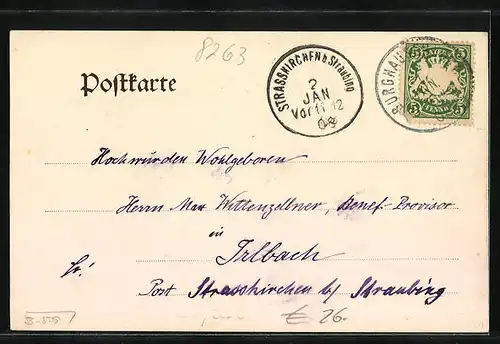 8263
Postkarte
STRASSKIRCHEN b Straubing
2
JAN
Vor 11-12
03
BURGHAU
5 BAYERN 5
5 PFENNIG 5
Hochwürden Wohlgeboren
Herrn Max Wittenzellner, Benef-Provisor
in
Irlbach
Fr!
Post Strasskirchen b/ Straubing
€ 26.